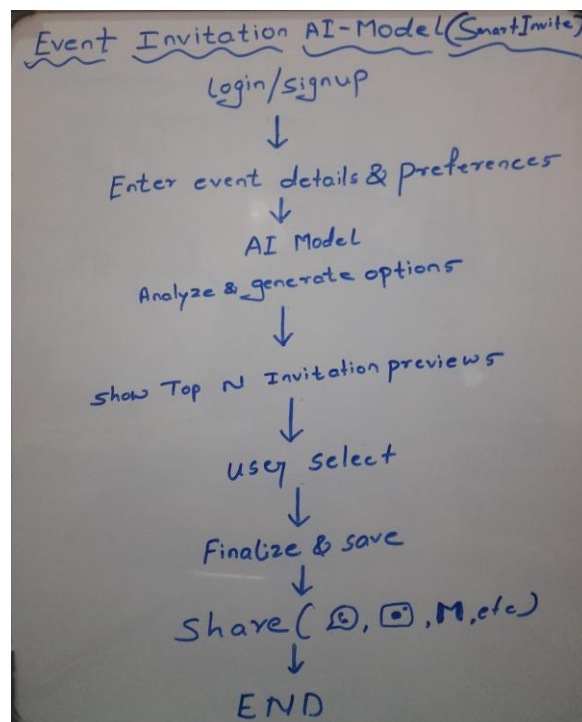 Event Invitation AI-Model (SmartInvite)
login/signup
Enter event details & preferences
AI Model
Analyze & generate options
show Top N Invitation previews
user select
Finalize & save
Share ( , , M, etc)
END